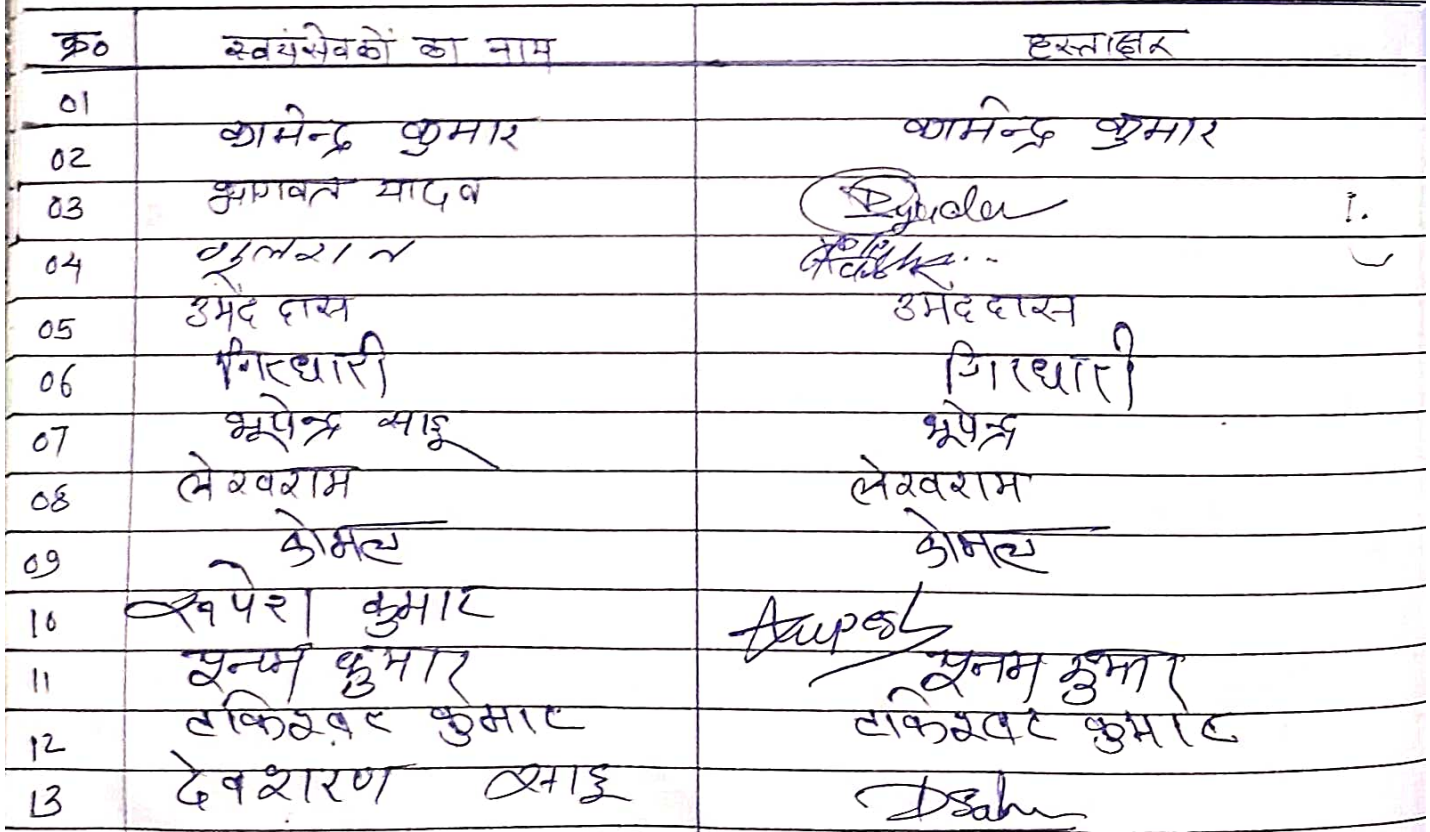 क्र० स्वयंसेवकों का नाम हस्ताक्षर
01
कामेन्द्र कुमार कामेन्द्र कुमार
02
भागवत यादव
03
गुलशन
04
उमेंद दास उमेंद दास
05
गिरधारी गिरधारी
06
भूपेन्द्र साहू भूपेन्द्र
07
लेखराम लेखराम
08
कोमल कोमल
09
रूपेश कुमार Rupesh
10
पूनम कुमार पूनम कुमार
11
टकेश्वर कुमार टकेश्वर कुमार
12
देवशरण साहू Dsahu
13